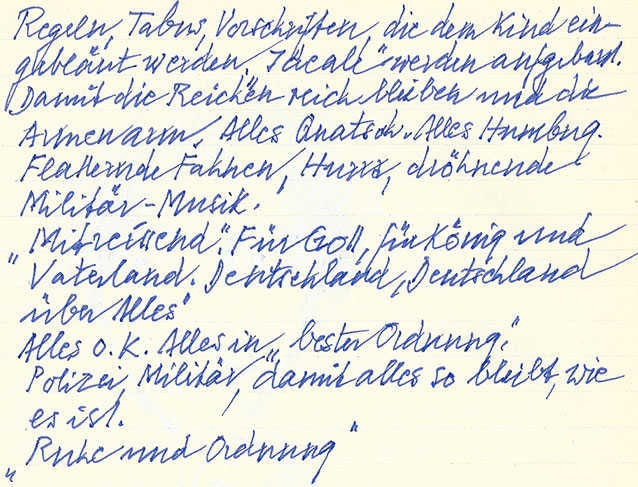 Regeln, Tabus, Vorschriften, die dem Kind ein-
gebläut werden, "Ideale" werden aufgebaut.
Damit die Reichen reich bleiben und die
Armen arm. Alles Quatsch. Alles Humbug.
Flatternde Fahnen, Hurra, dröhnende
Militär-Musik.
"Mitreissend". Für Gott, für König und
Vaterland. Deutschland, Deutschland
über Alles"
Alles O.K. Alles in "bester Ordnung."
Polizei, Militär, damit alles so bleibt, wie
es ist.
"Ruhe und Ordnung"